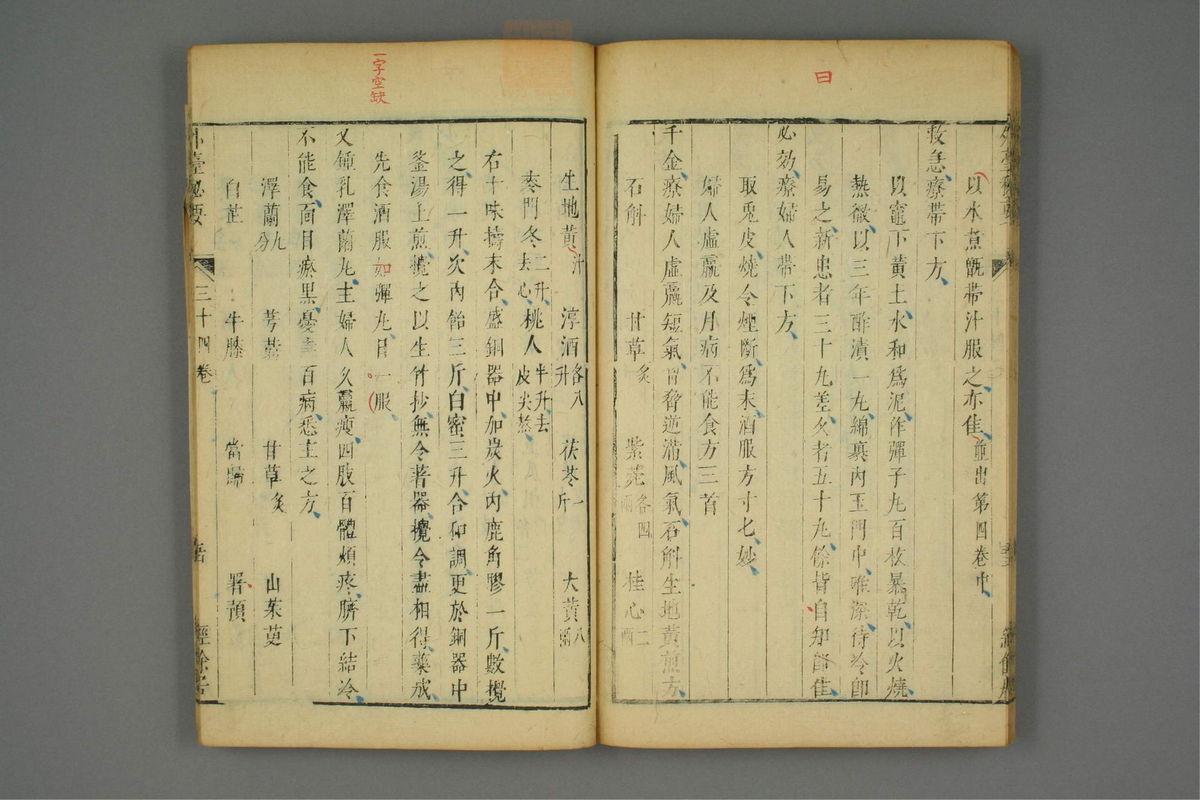 曰
以水煮甑帶汁服之亦佳並出第四卷中
救急療帶下方
以竈下黃土水和爲泥作彈子丸百枚暴乾以火燒
熱徹以三年酢漬一丸綿裹內玉門中唯深待冷即
易之新患者三十丸差久者五十九餘皆自知節佳
必效療婦人帶下方
取兔皮燒令煙斷爲末酒服方寸匕妙
婦人虛羸及月病不能食方三首
千金療婦人虛羸短氣胷脅逆滿風氣石斛生地黃煎方
石斛 甘草炙 紫菀各四兩 桂心二兩
生地黃汁 淳酒各八升 茯苓一斤 大黃八兩
麥門冬二升去心 桃人半升去皮尖蒸
右十味擣末合盛銅器中加炭火內鹿角膠一斤數攪
之得一升次內飴三斤白蜜三升合和調更於銅器中
釜湯上煎攪之以生竹抄無令著器攪令盡相得藥成
先食酒服如彈丸日一服
一字空缺
又鍾乳澤蘭丸主婦人久羸瘦四肢百體煩疼臍下結冷
不能食面目瘀黑憂恚百病悉主之方
澤蘭九分 芎藭 甘草炙 山茱萸
白芷 牛膝 當歸 署預
外臺秘要 三十四卷 經餘居